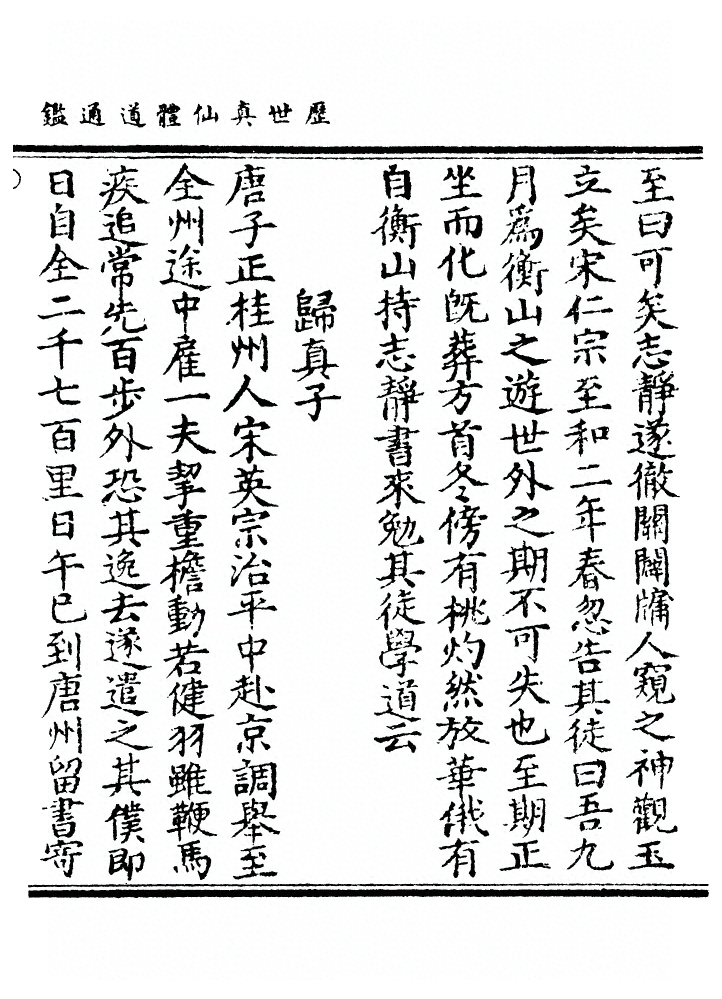 歷世真仙體道通鑑
至曰可矣志靜遂徹關闢牖人窺之神觀玉
立矣宋仁宗至和二年春忽告其徒曰吾九
月爲衡山之遊世外之期不可失也至期正
坐而化旣葬方首冬傍有桃灼然放華俄有
自衡山持志靜書來勉其徒學道云
歸真子
唐子正桂州人宋英宗治平中赴京調舉至
全州途中雇一夫挈重檐動若健羽雖鞭馬
疾追常先百步外恐其逸去遂遣之其僕即
日自全二千七百里日午已到唐州留書寄